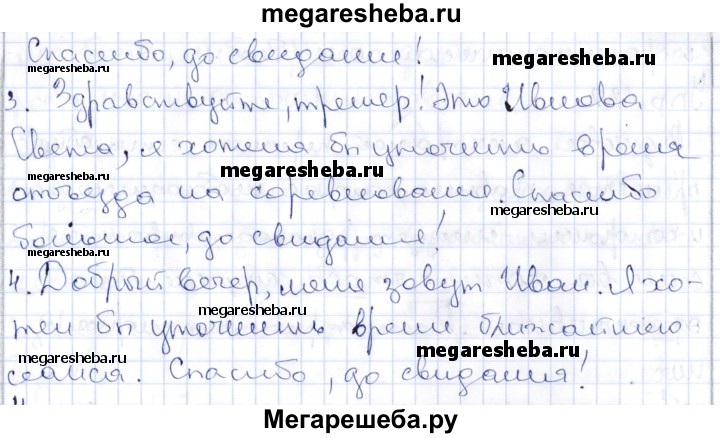 megaresheba.ru
Спасибо, до свидания!
megaresheba.ru
megaresheba.ru
3. Здравствуйте, тренер! Это Иванова
megaresheba.ru
Света, я хотела бы уточнить время
megaresheba.ru
отъезда на соревнования. Спасибо
megaresheba.ru
большое, до свидания!
4. Добрый вечер, меня зовут Иван. Я хо-
megaresheba.ru
тел бы уточнить время ближайшего
megaresheba.ru
megaresheba.ru
сеанса. Спасибо, до свидания!
Мегарешеба.ру